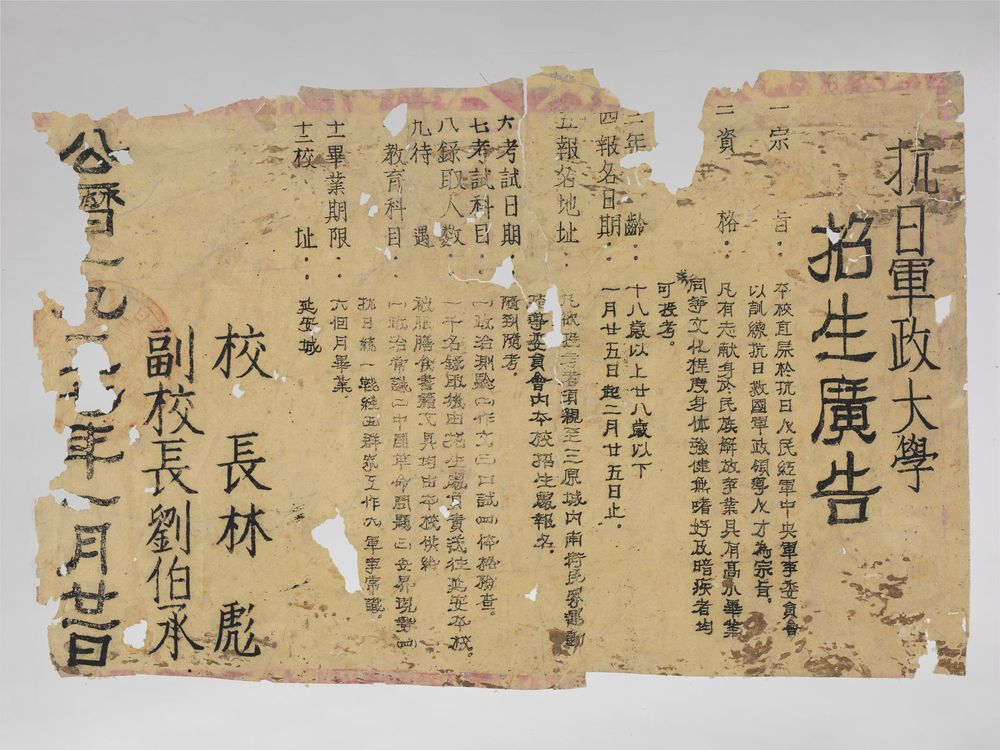 抗日軍政大學
招生廣告
一宗旨：本校直屬於抗日人民紅軍中央軍事委員會
以訓練抗日救國軍政領導人才為宗旨。
二資格：凡有志献身於民族解放事業具有高小畢業
或同等文化程度身体強健無嗜好及暗疾者均
可投考。
三年齡：十八歲以上廿八歲以下
四報名日期：一月廿五日起二月廿五日止。
五報名地址：凡欲投考者須親至三原城内南街民眾運動
指導委員會内本校招生處報名。
六考試日期：隨到隨考。
七考試科目：㈠政治測驗㈡作文㈢口試㈣体格檢查。
八録取人数：一千名録取後由招生處負責送往延安本校。
九待遇：被服膳食書籍文具均由本校供給
教育科目：㈠政治常識㈡中國革命問題㈢世界現勢㈣
抗日統一戰線㈤群眾工作㈥軍事常識。
十一畢業期限：六個月畢業
十二校址：延安城
校長林彪
副校長劉伯承
公曆一九三七年一月廿一日